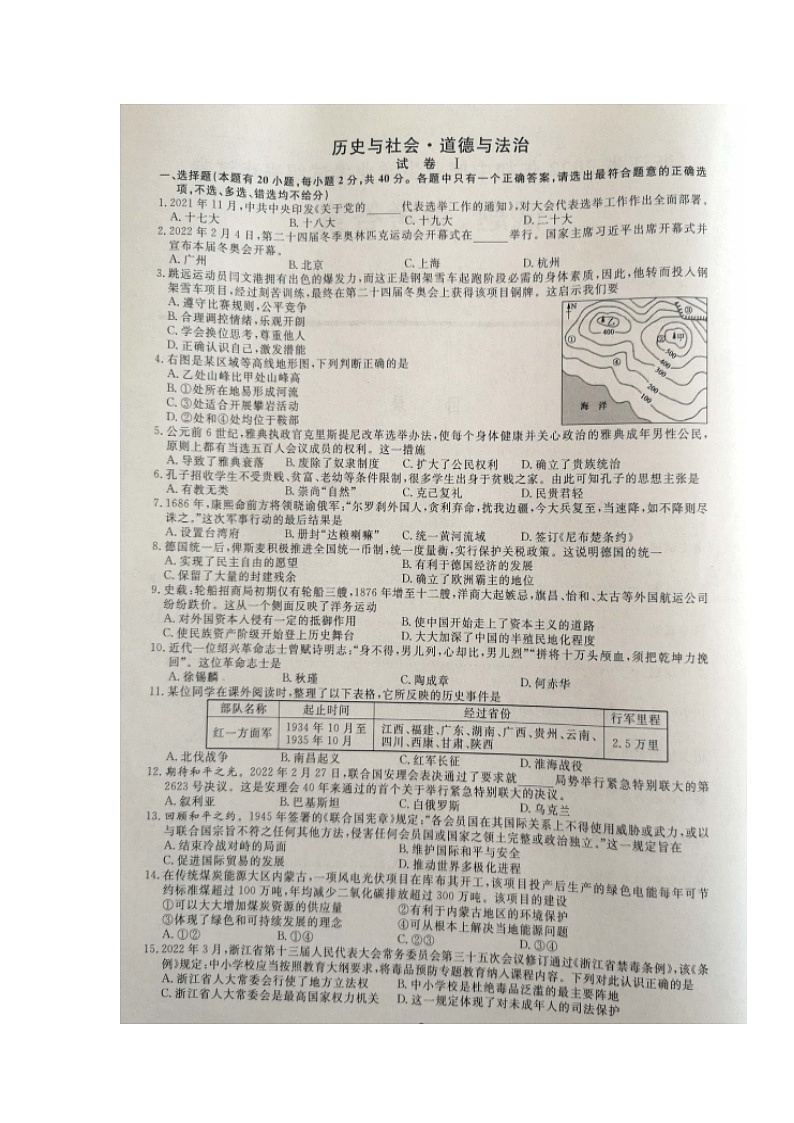 历史与社会·道德与法治
试 卷 Ⅰ
一、选择题(本题有20小题,每小题2分,共40分。各题中只有一个正确答案,请选出最符合题意的正确选
项,不选、多选、错选均不给分)
1.2021年11月,中共中央印发《关于党的______代表选举工作的通知》,对大会代表选举工作作出全面部署。
A.十七大 B.十八大 C.十九大 D.二十大
2.2022年2月4日,第二十四届冬季奥林匹克运动会开幕式在______举行。国家主席习近平出席开幕式并
宣布本届冬奥会开幕。
A.广州 B.北京 C.上海 D.杭州
3.跳远运动员闫文港拥有出色的爆发力,而这正是钢架雪车起跑阶段必需的身体素质,因此,他转而投入钢
架雪车项目,经过刻苦训练,最终在第二十四届冬奥会上获得该项目铜牌。这启示我们要
A.遵守比赛规则,公平竞争
B.合理调控情绪,乐观开朗
C.学会换位思考,尊重他人
D.正确认识自己,激发潜能
N
乙
400
①
②
甲
③
④
500
400
300
200
100
海 洋
4.右图是某区域等高线地形图,下列判断正确的是
A.乙处山峰比甲处山峰高
B.①处所在地易形成河流
C.③处适合开展攀岩活动
D.②处和④处均位于鞍部
5.公元前6世纪,雅典执政官克里斯提尼改革选举办法,使每个身体健康并关心政治的雅典成年男性公民,
原则上都有当选五百人会议成员的权利。这一措施
A.导致了雅典衰落 B.废除了奴隶制度 C.扩大了公民权利 D.确立了贵族统治
6.孔子招收学生不受贵贱、贫富、老幼等条件限制,很多学生出身于贫贱之家。由此可知孔子的思想主张是
A.有教无类 B.崇尚“自然” C.克己复礼 D.民贵君轻
7.1686年,康熙命前方将领晓谕俄军:“尔罗刹外国人,贪利弃命,扰我边疆,今大兵复至,当速降,如不降则尽
诛之。”这次军事行动的最后结果是
A.设置台湾府 B.册封“达赖喇嘛” C.统一黄河流域 D.签订《尼布楚条约》
8.德国统一后,俾斯麦积极推进全国统一币制,统一度量衡,实行保护关税政策。这说明德国的统一
A.实现了民主自由的愿望 B.有利于德国经济的发展
C.保留了大量的封建残余 D.确立了欧洲霸主的地位
9.史载:轮船招商局初期仅有轮船三艘,1876年增至十二艘,洋商大起嫉忌,旗昌、怡和、太古等外国航运公司
纷纷跌价。这从一个侧面反映了洋务运动
A.对外国资本入侵有一定的抵御作用 B.使中国开始走上了资本主义的道路
C.使民族资产阶级开始登上历史舞台 D.大大加深了中国的半殖民地化程度
10.近代一位绍兴革命志士曾赋诗明志:“身不得,男儿列,心却比,男儿烈”“拼将十万头颅血,须把乾坤力挽
回”。这位革命志士是
A.徐锡麟 B.秋瑾 C.陶成章 D.何赤华
11.某位同学在课外阅读时,整理了以下表格,它所反映的历史事件是
部队名称 起止时间 经过省份 行军里程
红一方面军 1934年10月至1935年10月 江西、福建、广东、湖南、广西、贵州、云南、四川、西康、甘肃、陕西 2.5万里
A.北伐战争 B.南昌起义 C.红军长征 D.淮海战役
12.期待和平之光。2022年2月27日,联合国安理会表决通过了要求就______局势举行紧急特别联大的第
2623号决议。这是安理会40年来通过的首个关于举行紧急特别联大的决议。
A.叙利亚 B.巴基斯坦 C.白俄罗斯 D.乌克兰
13.回顾和平之约。1945年签署的《联合国宪章》规定:“各会员国在其国际关系上不得使用威胁或武力,或以
与联合国宗旨不符之任何其他方法,侵害任何会员国或国家之领土完整或政治独立。”这一规定旨在
A.结束冷战对峙的局面 B.维护国际和平与安全
C.促进国际贸易的发展 D.推动世界多极化进程
14.在传统煤炭能源大区内蒙古,一项风电光伏项目在库布其开工,该项目投产后生产的绿色电能每年可节
约标准煤超过100万吨,年均减少二氧化碳排放超过300万吨。该项目的建设
①可以大大增加煤炭资源的供应量 ②有利于内蒙古地区的环境保护
③体现了绿色和可持续发展的理念 ④可从根本上解决当地能源问题
A.①② B.①④ C.②③ D.③④
15.2022年3月,浙江省第十三届人民代表大会常务委员会第三十五次会议修订通过《浙江省禁毒条例》,该《条
例》规定:中小学校应当按照教育大纲要求,将毒品预防专题教育纳入课程内容。下列对此认识正确的是
A.浙江省人大常委会行使了地方立法权 B.中小学校是杜绝毒品泛滥的最主要阵地
C.浙江省人大常委会是最高国家权力机关 D.这一规定体现了对未成年人的司法保护